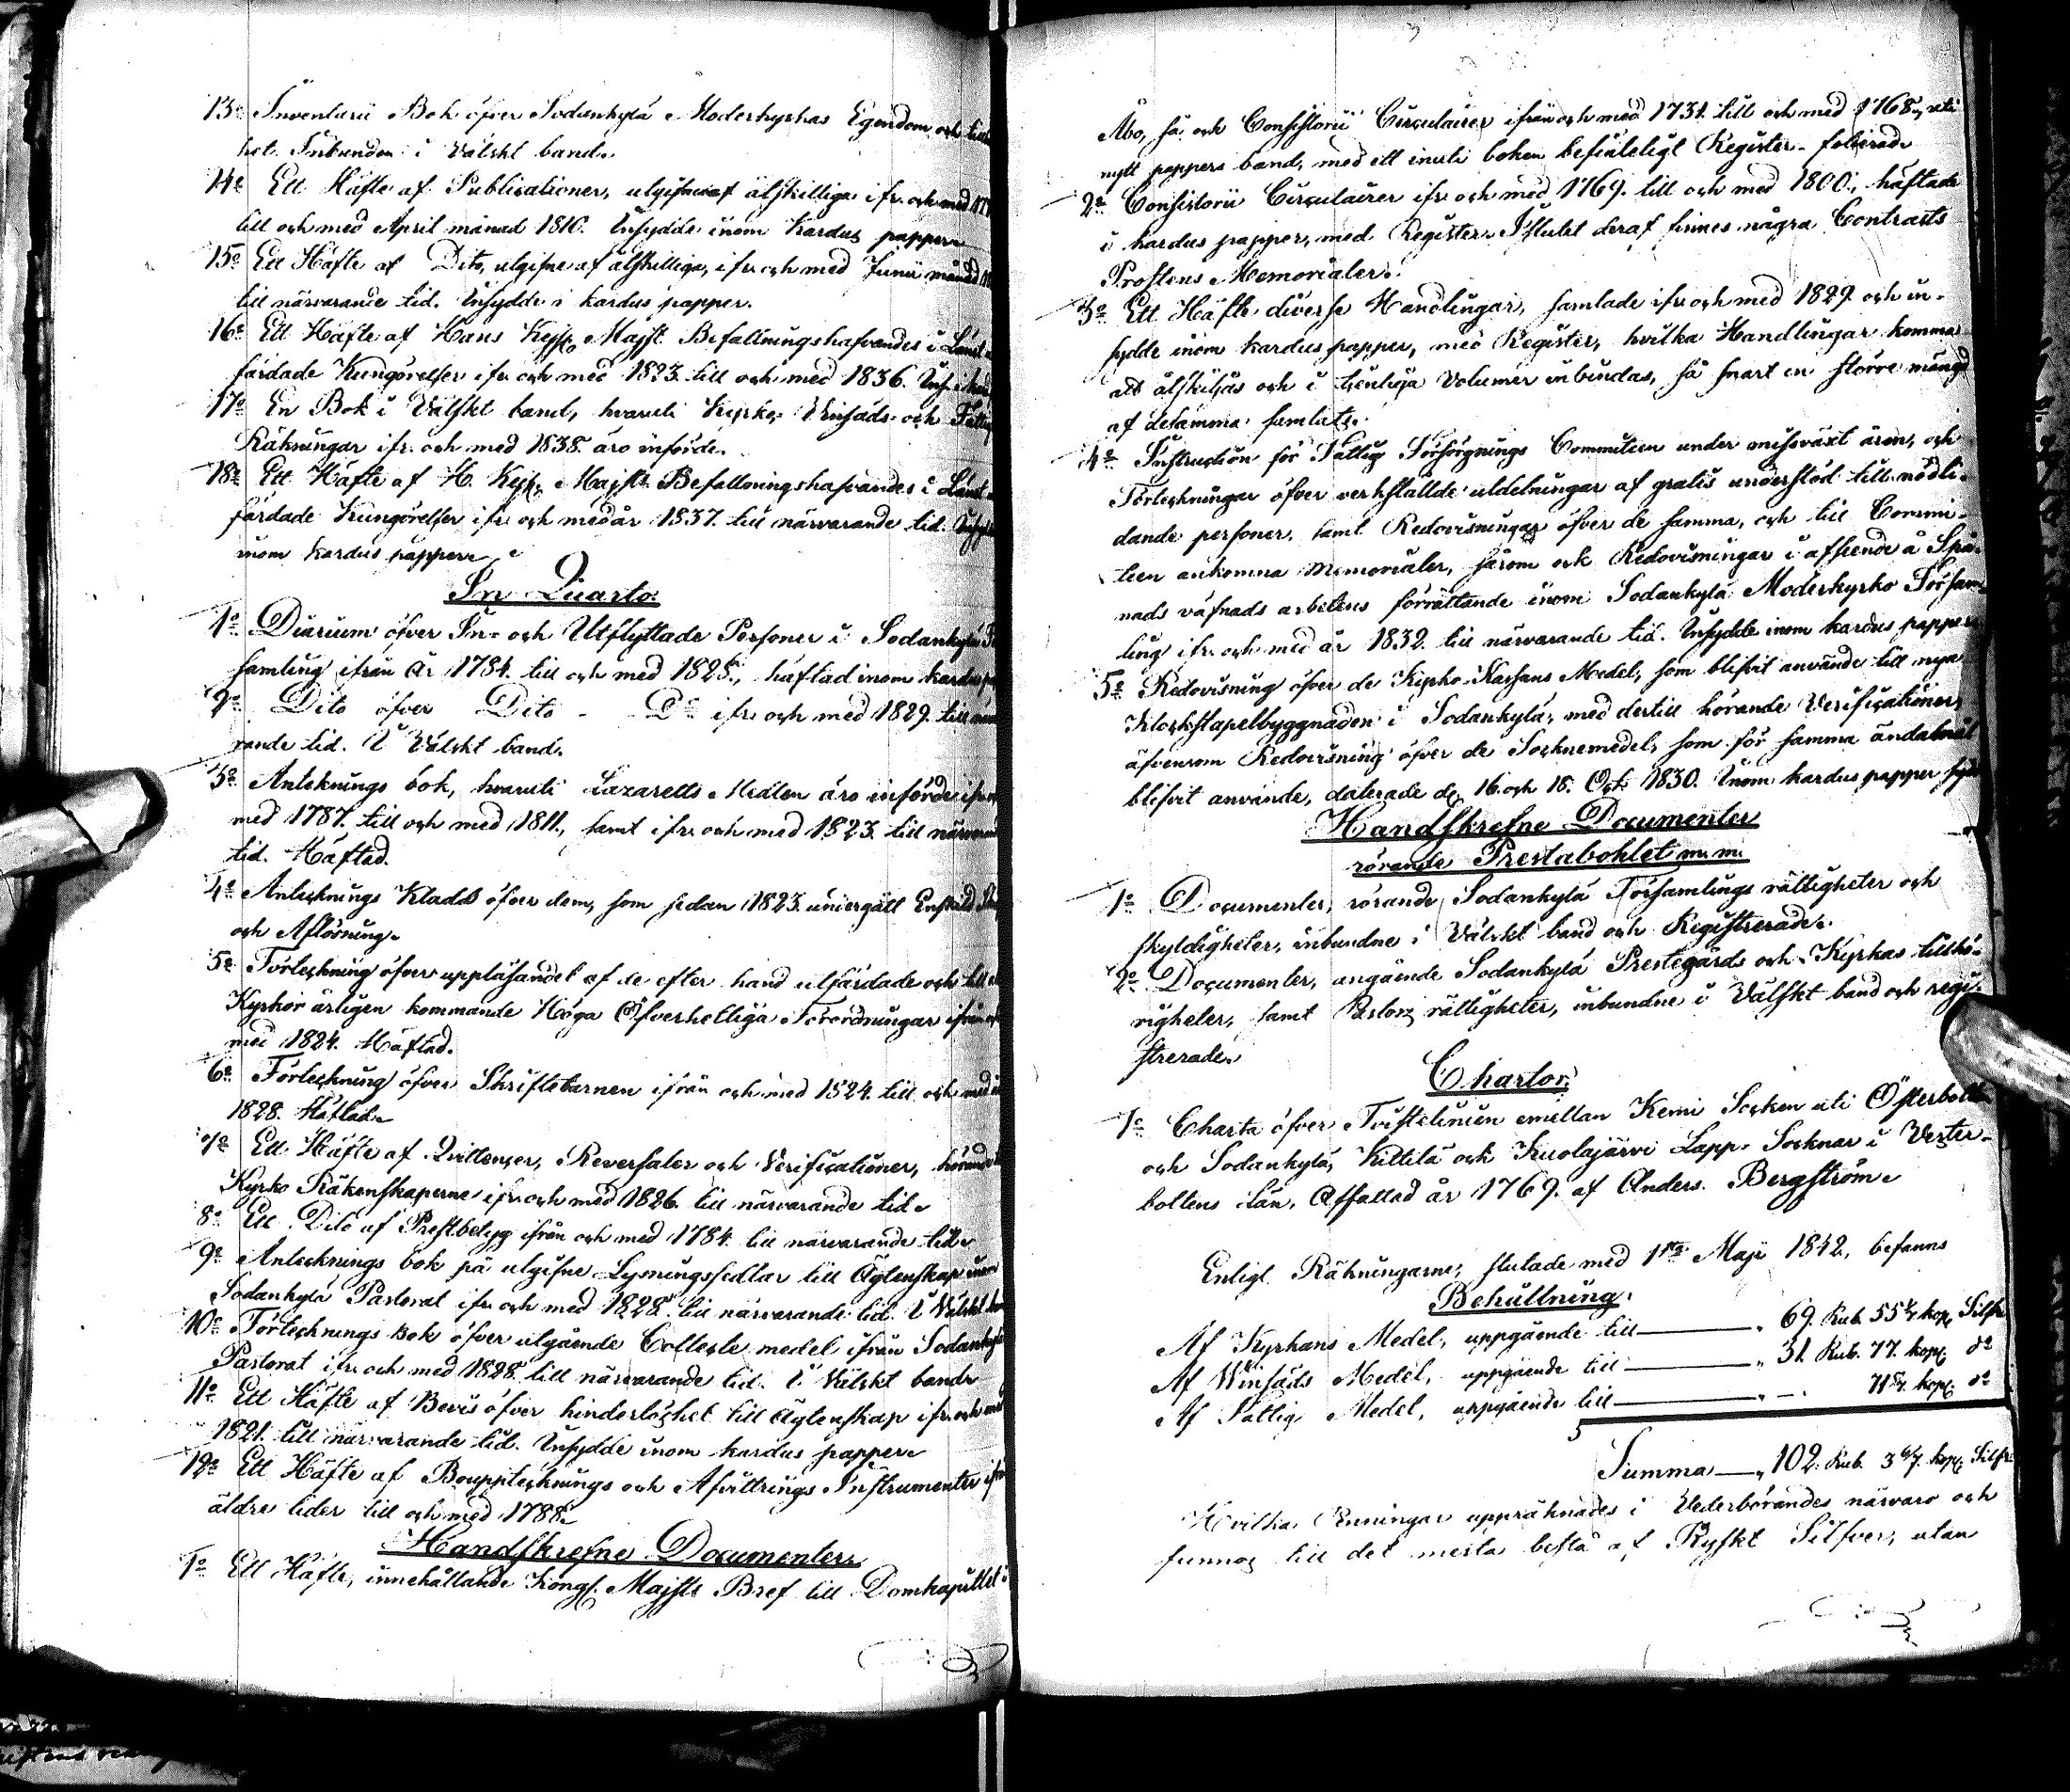 13o Inventarii Bok öfver Sodankylä Moderkyrkas Egendom och
het. Inbunden i Välskt band.
14o Ett Häfte af Publicationer, utgifne af åtskilliga ifr. och med
till och med April månad 1810. Insydde inom Kardus papper.
15o Ett Häfte af Dito, utgifne af åtskilliga, ifr. och med Junii månad
till närvarande tid. Insydde i kardus papper.
16o Ett Häfte af Hans Kejs. Majsts Befallningshafvandes i Länet
färdade Kungörelser ifr. och med 1823. till och med 1836. Ins.
17o En Bok i Välskt band, hvaruti Kyrko- Vinsäds- och
Räkningar ifr. och med 1838. äro införde.
18o Ett Häfte af H. Kejs. Majsts Befallningshafvandes i Länet
färdade Kungörelser ifr. och med år 1837. till närvarande tid.
inom kardus papper.
In Quarto:
1o Diarium öfver In- och Utflyttade Personer i Sodankylä
samling ifrån år 1784. till och med 1828., häftad inom kardus
2o Dito öfver Dito - Do ifr. och med 1829. till
rande tid. I Välskt band.
3o Antecknings bok, hvaruti Lazaretts Medlen äro införde ifr.
med 1787. till och med 1811., samt ifr. och med 1823. till närvarande
tid. Häftad.
4o Antecknings Kladd öfver dem, som sedan 1823. undergått Enskild
och Aflösning.
5o Förteckning öfver uppläsandet af de efter hand utfärdade och till
Kyrkor årligen kommande Höga Öfverhetliga Förordningar ifrån
med 1824. Häftad.
6o Förteckning öfver Skriftebarnen ifrån och med 1824. till och med
1828. Häftad.
7o Ett Häfte af Qvittencer, Reversaler och Verificationer, hörande
Kyrko Räkenskaperne ifr. och med 1826. till närvarande tid.
8o Ett Dito af Prestbetyg ifrån och med 1784. till närvarande tid.
9o Antecknings bok på utgifne Lysningssedlar till Ägtenskap inom
Sodankylä Pastorat ifr. och med 1828. till närvarande tid. I Välskt
10o Förtecknings Bok öfver utgående Collecte medel ifrån Sodankylä
Pastorat ifr. och med 1828. till närvarande tid. I Välskt band.
11o Ett Häfte af Bevis öfver hinderlöshet till Ägtenskap ifr. och med
1821. till närvarande tid. Insydde inom kardus papper.
12o Ett Häfte af Bouppteknings och Afvittrings Instrumenter ifr
äldre tider till och med 1788.
Handskrefne Documenter.
1o Ett Häfte, innehållande Kongl. Majsts Bref till Domkapittlet i
Åbo, så och Consistorii Circulairer ifrån och med 1731. till och med 1768., uti
nytt pappers band, med ett inuti boken befinteligt Register. folierad.
2o Consistorii Circulairer ifr. och med 1769. till och med 1800., häftade
i kardus papper, med Register. I slutet deraf finnes några Contracts
Prostens Memorialer.
3o Ett Häfte diverse Handlingar, samlade ifr. och med 1829. och in-
sydde inom kardus papper, med Register, hvilka Handlingar komma
att åtskiljas och i tjenliga Volumer inbindas, så snart en större mängd
af desamma samlats.
4o Instruction för Fattig Försörgnings Committeen under missväxt åren, och
Förteckningar öfver verkställde utdelningar af gratis understöd till nödli-
dande personer, samt Redovisningar öfver de samma, och till Commi-
teen ankomna Memorialer, såsom ock Redovisningar i afseende å Spå-
nads väfnads arbetens förrättande inom Sodankylä Moderkyrko Försam-
ling ifr. och med år 1832. till närvarande tid. Insydde inom kardus papper
5o Redovisning öfver de Kyrko Kassans Medel, som blifvit använde till nya
Klockstapelbyggnaden i Sodankylä, med dertill hörande Verificationer,
äfvensom Redovisning öfver de Socknemedel, som för samma ändamål
blifvit använde, daterade d. 16. och 18. Oct. 1830. Inom kardus papper
Handskrefne Documenter
rörande Prestabohlet m. m.
1o Documenter, rörande Sodankylä Församlings rättigheter och
skyldigheter, inbundne i Välskt band och Registrerade.
2o Documenter, angående Sodankylä Prestegårds och Kyrkas tillhö-
righeter, samt Pastors rättigheter, inbundne i Välskt band och regi-
strerade.
Chartor:
1o Charta öfver Tvistelinien emellan Kemi Socken uti Österbotten
och Sodankylä, Kittilä och Kuolajärvi Lapp- Socknar i Vester-
bottens Län, Affattad år 1769. af Anders Bergström.
Enligt Räkningarne, slutade med 1sta Maji 1842, befanns
Behållning.
Af Kyrkans Medel, uppgående till — 69. Rub. 55 1/7 kop. Silfv.
Af Vinsäds Medel, uppgående till — 31. Rub. 77. kop. do
Af Fattig Medel, uppgående till — „ — 71 5/7. kop. do
Summa — „ 102. Rub. 3 6/7. kop. Silfv.
Hvilka Penningar uppräknades i Vederbörandes närvaro och
funnos till det mesta bestå af Ryskt Silfver, utan